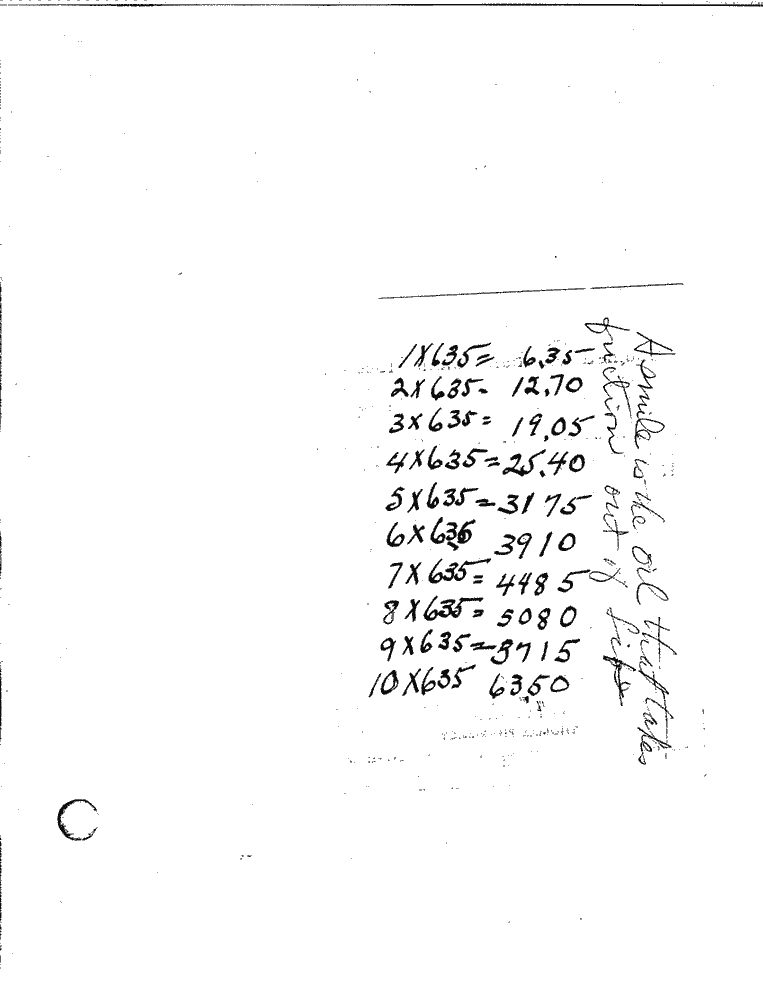 1X635= 6.35
2X635- 12.70
3X635= 19.05
4X635=25.40
5X635=3175
6X635 3910
7X635= 4485
8X635= 5080
9X635=5715
10X635 6350
A smile is the oil that takes
friction out of life